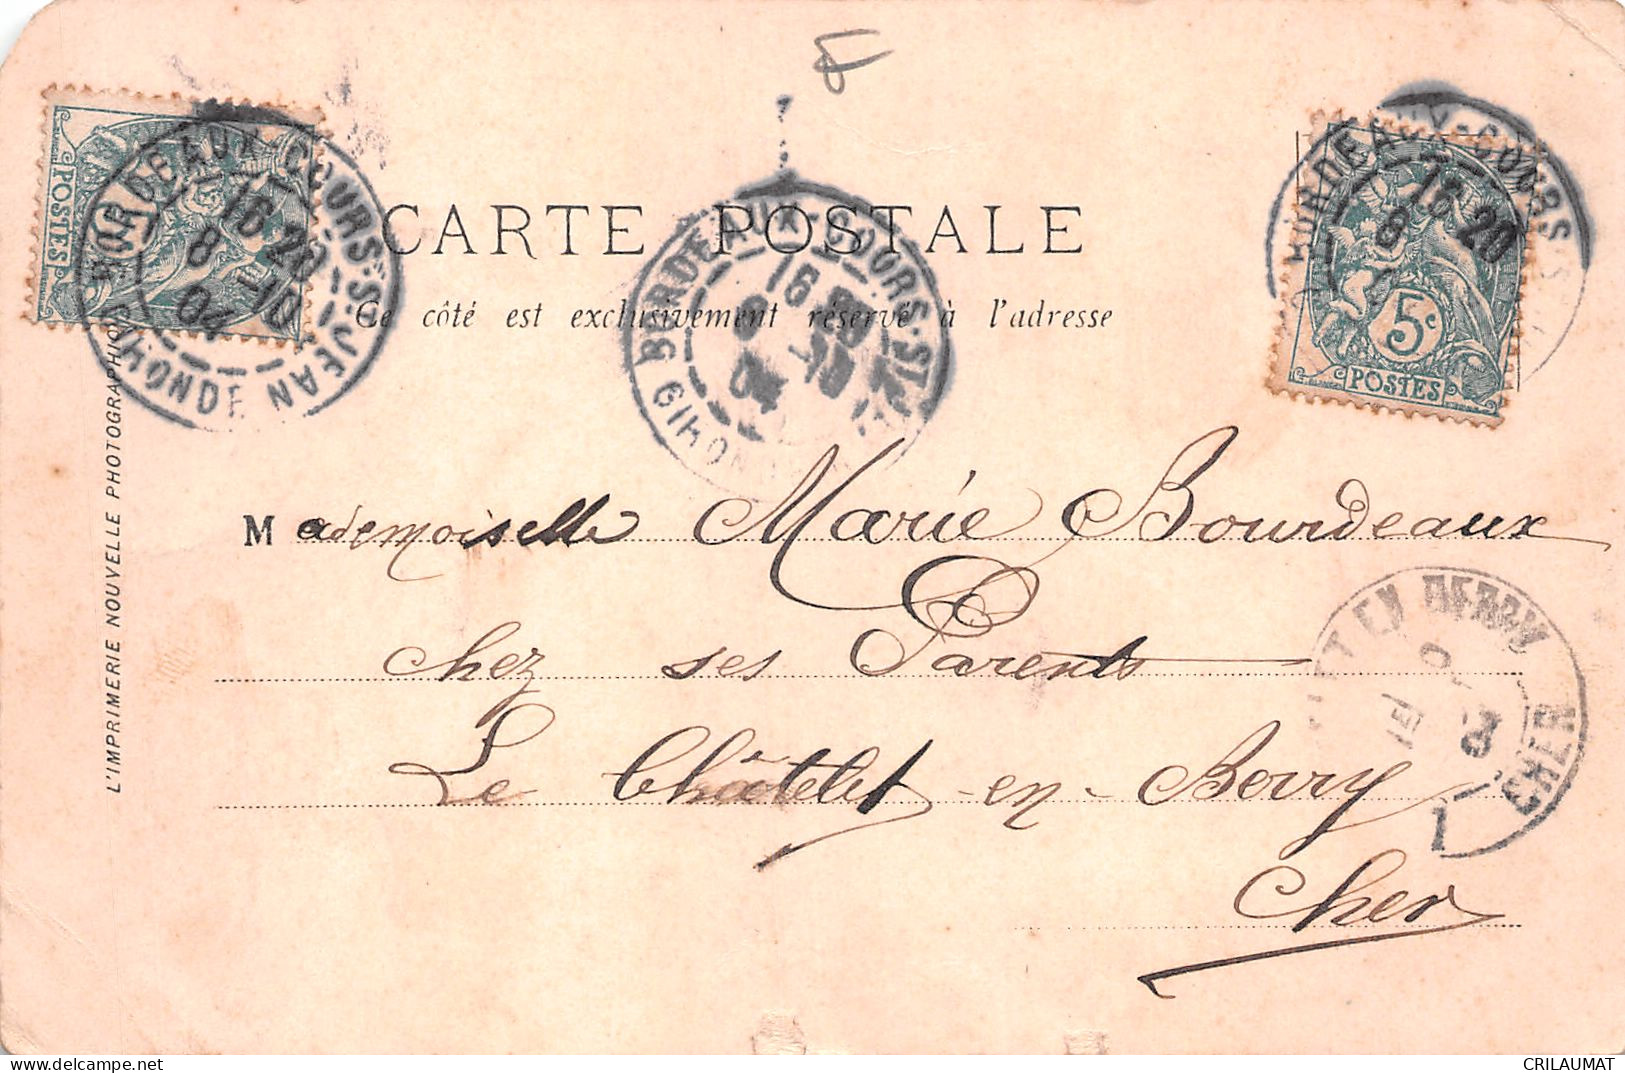 CARTE POSTALE
Ce côté est exclusivement réservé à l'adresse
BORDEAUX-COURS-ST-JEAN
16 20
8 -10
04
GIRONDE
POSTES
BORDEAUX-COURS-ST
16
8
04
GIRONDE
BORDEAUX-COURS-S
16 20
8
5c
POSTES
Mademoiselle Marie Bourdeaux
chez ses Parents
Le Châtelet-en-Berry
Cher
EN BERRY
CHER
L'IMPRIMERIE NOUVELLE PHOTOGRAPHIQUE
CRILAUMAT